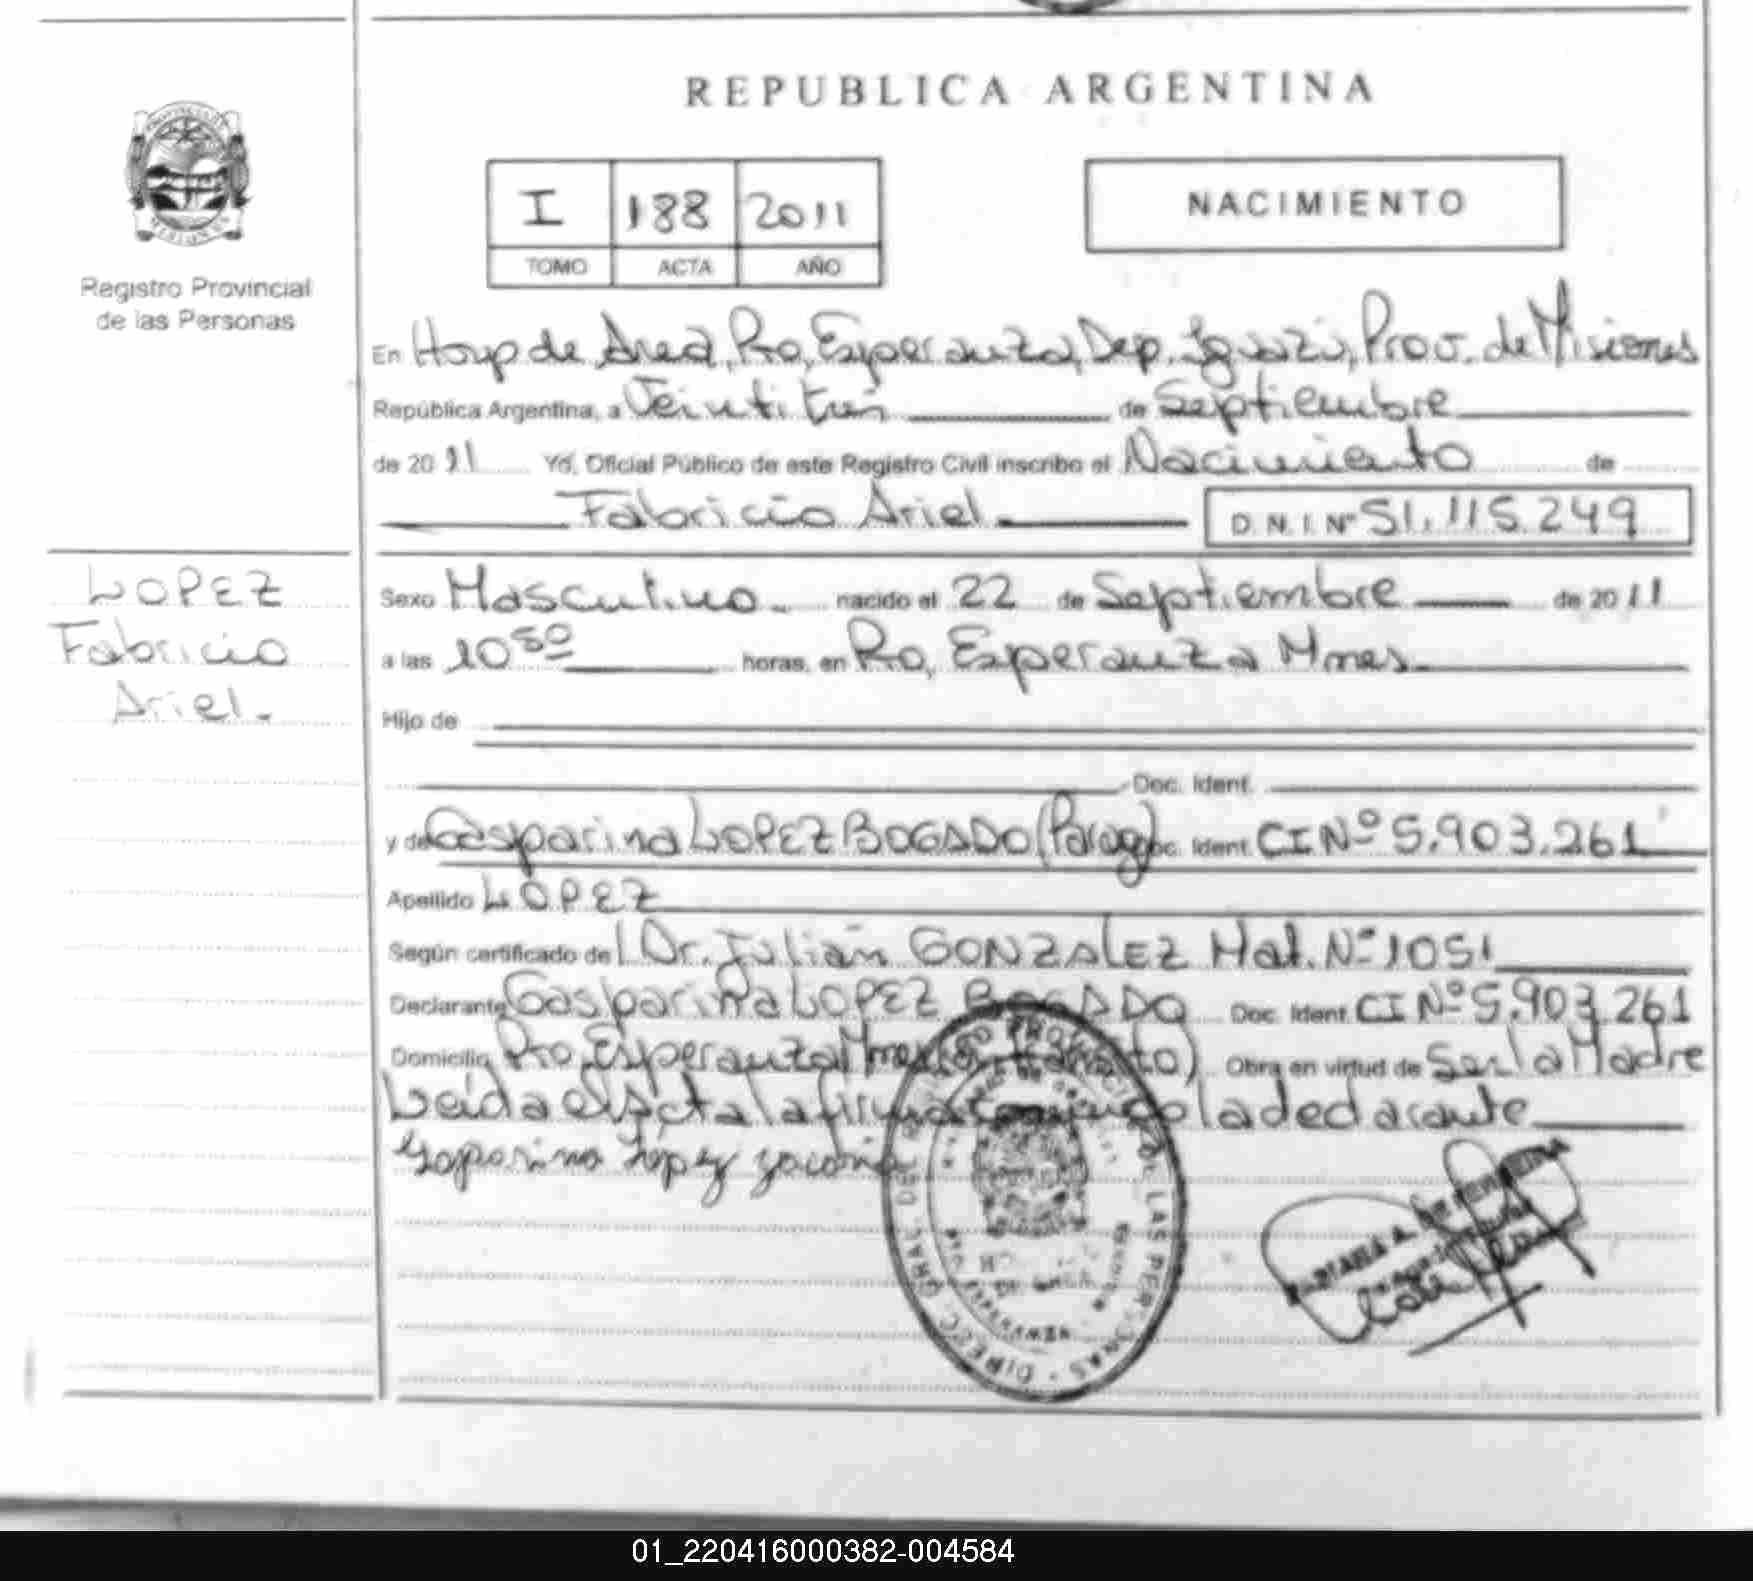 REPUBLICA ARGENTINA
I 188 2011
TOMO ACTA AÑO
NACIMIENTO
Registro Provincial
de las Personas
En Hosp de Area, Pto, Esperanza, Dep. Iguazú, Prov. de Misiones
República Argentina, a Veintitrés de Septiembre
de 20 11 Yo, Oficial Público de este Registro Civil inscribo el Nacimiento de
Fabricio Ariel.
D. N. I. Nº 51.115.249
LOPEZ
Fabricio
Ariel.
Sexo Masculino. nacido el 22 de Septiembre de 20 11
a las 10 50 horas, en Pto, Esperanza Mnes.
Hijo de
Doc. Ident.
y de Gasparina LOPEZ BOGADO (Parag) Doc. Ident. CI Nº 5.903.261
Apellido LOPEZ
Según certificado del Dr. Julián GONZALEZ Mat. Nº 1051
Declarante Gasparina LOPEZ BOGADO Doc. Ident. CI Nº 5.903.261
Domicilio Pto, Esperanza Obra en virtud de Ser la Madre
Leída el Acta la firma conmigo la declarante
Gasparina López
DIREC. GRAL. DEL REGISTRO PROVINCIAL DE LAS PERSONAS
01_220416000382-004584